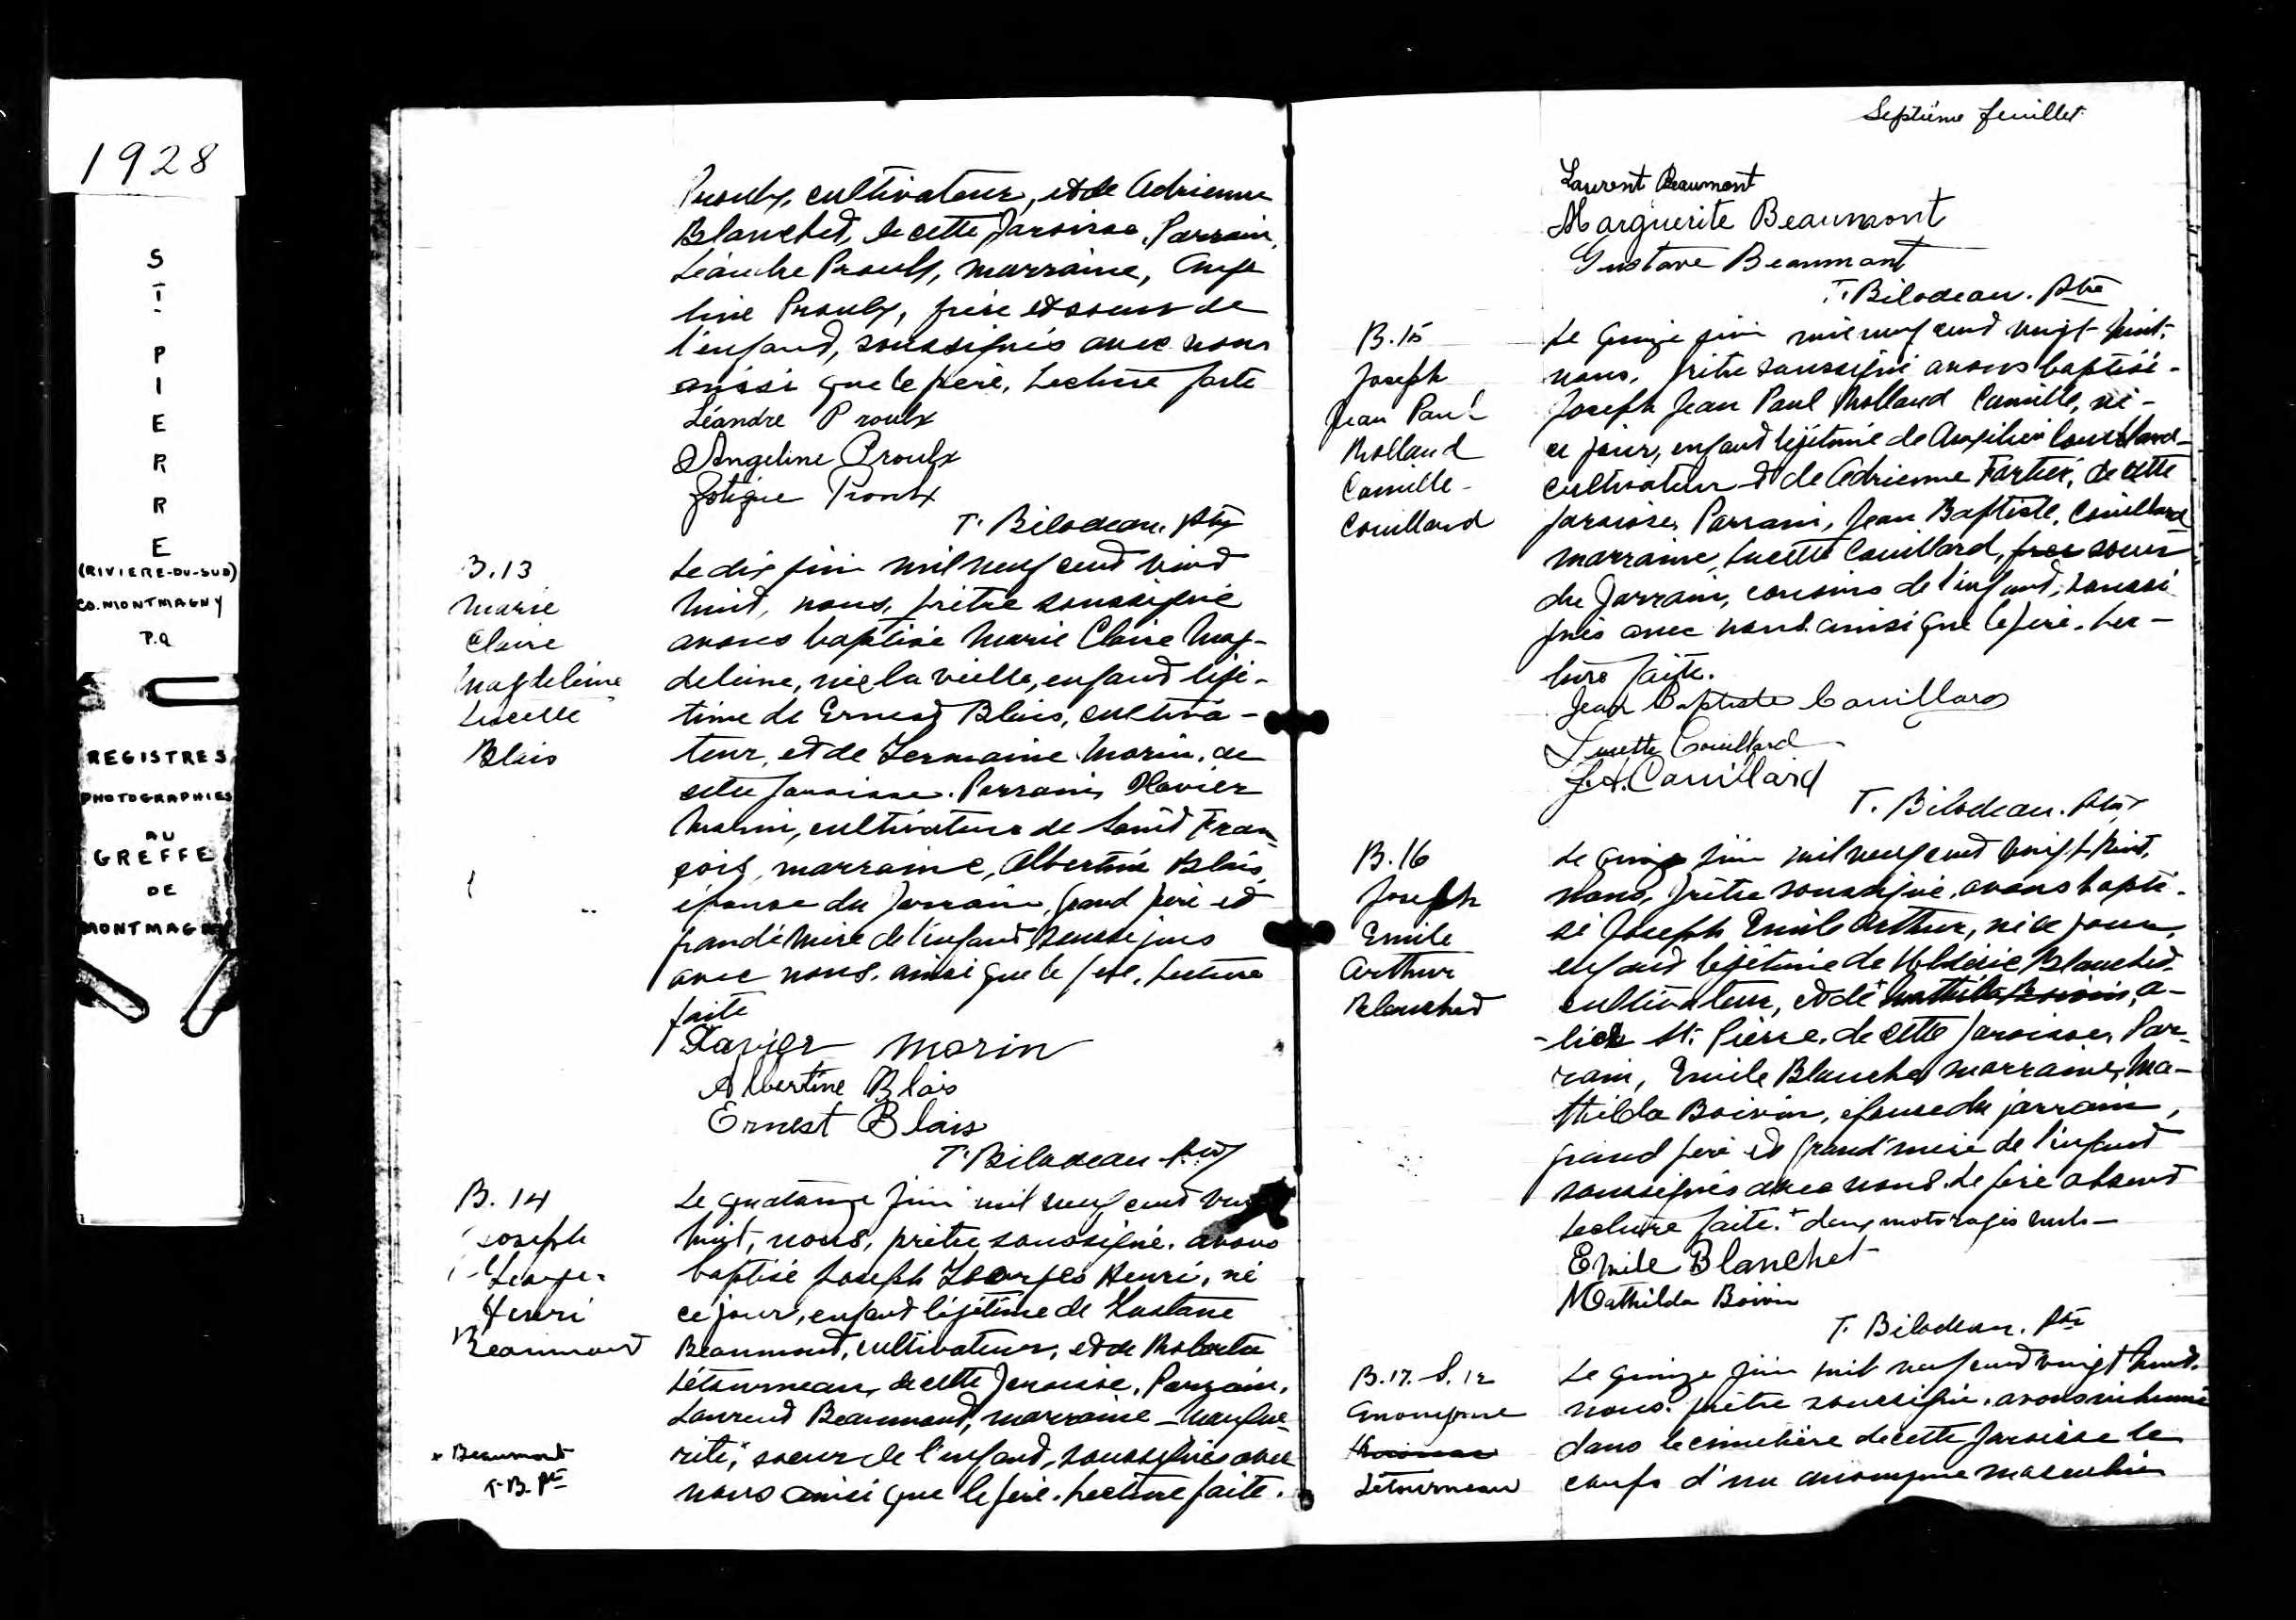 1928
ST PIERRE
(RIVIERE-DU-SUD)
CO. MONTMAGNY
P.Q
REGISTRES
PHOTOGRAPHIES
AU
GREFFE
DE
MONTMAGNY
Proulx, cultivateur, et de Adrienne
Blanchet, de cette paroisse, Parrain,
Léandre Proulx, marraine, Ange
line Proulx, frère et soeur de
l'enfant, soussignés avec nous
ainsi que le père. Lecture faite
Léandre Proulx
Angeline Proulx
Zotique Proulx
T. Bilodeau, ptre
B.13
Marie
Claire
Magdeleine
Lucelle
Blais
Le dix juin mil neuf cent vind
huit, nous, prêtre soussigné
avons baptisé Marie Claire Mag-
deleine, née la veille, enfant légi-
time de Ernest Blais, cultiva-
teur, et de Germaine Morin, de
cette paroisse. Parrain, Xavier
Morin, cultivateur de Saint Fran
çois, marraine, Albertine Blais,
épouse du parrain, grand père et
grand'mère de l'enfant, soussignés
avec nous, ainsi que le père, Lecture
faite
Xavier Morin
Albertine Blais
Ernest Blais
T. Bilodeau ptre
B. 14
Joseph
George
Henri
Beaumont
Le quatorze juin mil neuf cent
huit, nous, prêtre soussigné, avons
baptisé Joseph Georges Henri, né
ce jour, enfant légitime de Gustave
Beaumont, cultivateur, et de
Létourneau, de cette paroisse, Parrain,
Laurent Beaumont, marraine - Margue
rite,* soeur de l'enfant, soussignés avec
nous ainsi que le père. Lecture faite.
* Beaumont
T.B. Ptre
Septième feuillet
Laurent Beaumont
Marguerite Beaumont
Gustave Beaumont
T. Bilodeau. Ptre
B.15
Joseph
Jean Paul
Rolland
Camille
Couillard
Le quinze juin mil neuf cent vingt-huit,
nous, prêtre soussigné avons baptisé
Joseph Jean Paul Rolland Camille, né
ce jour, enfant légitime de Couillard
cultivateur et de Adrienne Fortier, de cette
paroisse, Parrain, Jean Baptiste, Couillard
marraine, Lucette Couillard, soeur
du parrain, cousins de l'enfant, soussi
gnés avec nous ainsi que le père. Lec-
ture faite.
Jean Baptiste Couillard
Lucette Couillard
J.A. Couillard
T. Bilodeau. ptre
B.16
Joseph
Emile
Arthur
Blanchet
Le quinze juin mil neuf cent vingt huit,
nous, prêtre soussigné, avons bapti
sé Joseph Emile Arthur, né ce jour,
enfant légitime de Blanchet,
cultivateur, et de + Mathilda Boivin, A-
-lice St. Pierre, de cette paroisse, Par-
rain, Emile Blanchet, marraine, Ma-
thilda Boivin, épouse du parrain,
grand père et grand'mère de l'enfant
soussignés avec nous. Le père absent
Lecture faite. + deux mots rayés nuls -
Emile Blanchet
Mathilda Boivin
T. Bilodeau. Ptre
B.17. S.12
Anonyme
Létourneau
Le quinze juin mil neuf cent vingt huit,
nous, prêtre soussigné, avons inhumé
dans le cimetière de cette paroisse le
corps d'un anonyme masculin